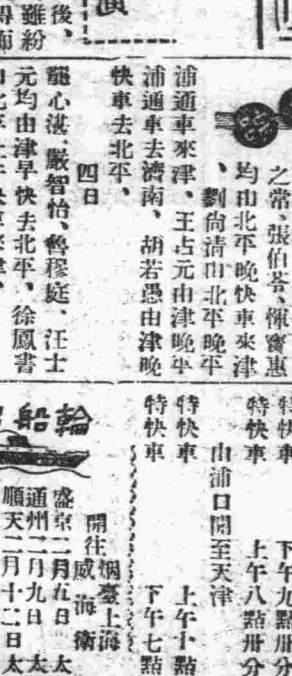 後、
雖粉
得而
演
之常、張伯苓、惲寶惠
均由北平晚快車來津
、劉尙清由北平晚平
浦通車來津、王占元由津晚平
浦通車去濟南、胡若愚由津晚
快車去北平、
四日
龍心湛、嚴智怡、魯穆庭、汪士
元均由津早快去北平、徐鳳書
特快車 下午九點卅分
特快車 上午八點卅分
由浦口開至天津
特快車 上午十點
特快車 下午七點
輪船
開往烟臺上海
威海衛
盛京二月五日 太
通州二月九日 太
順天二月十二日 太